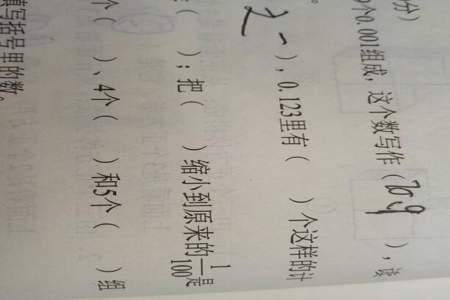 分)
个0.001组成，这个数写作(70.9)，读
)，0.123里有( )个这样的计
( )；把( )缩小到原来的1/100是
个( )、4个( )和5个( )组
填写括号里的数。